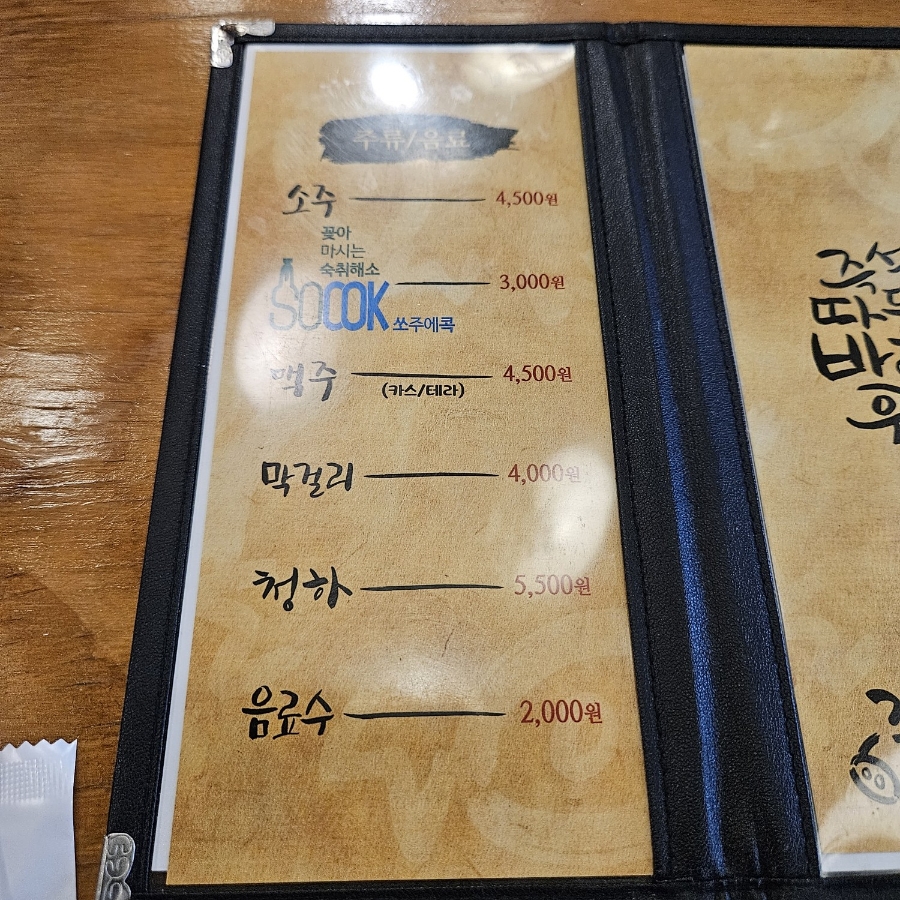 주류/음료
소주 4,500원
꽂아
마시는
숙취해소
SOCOK 쏘주에콕 3,000원
맥주 4,500원
(카스/테라)
막걸리 4,000원
청하 5,500원
음료수 2,000원